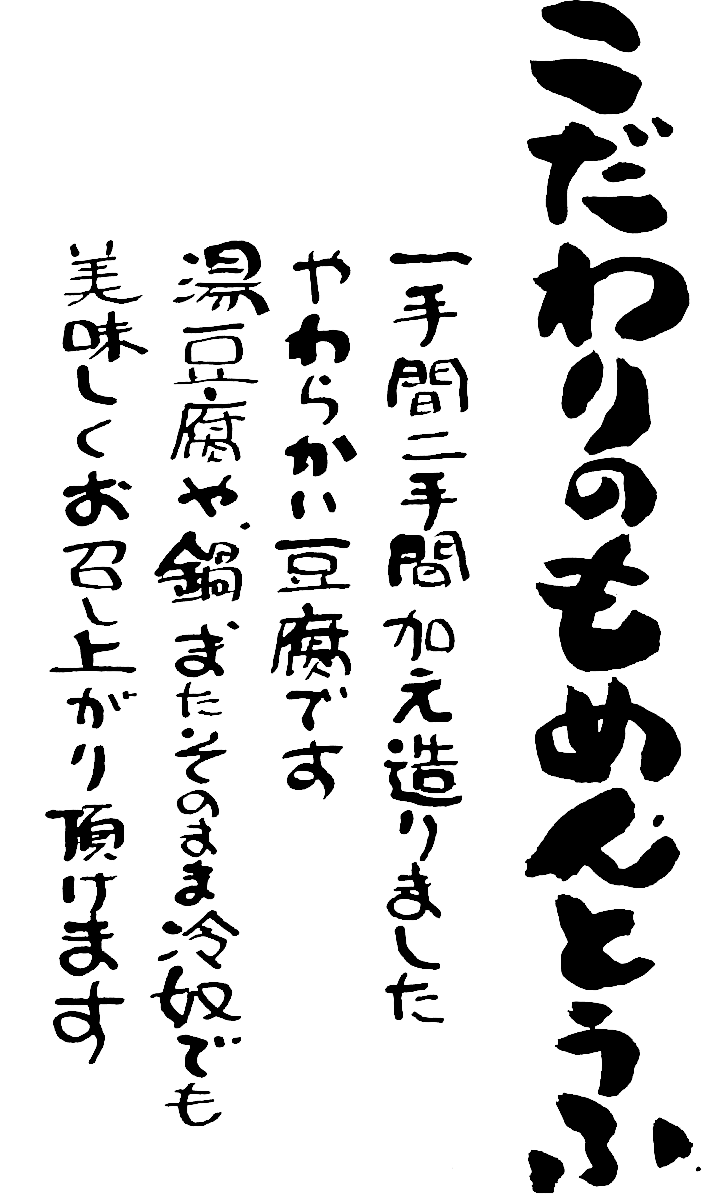 こだわりのもめんとうふ
一手間二手間加え造りました
やわらかい豆腐です
湯豆腐や、鍋またそのまま冷奴でも
美味しくお召し上がり頂けます